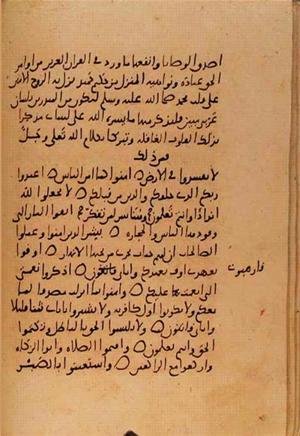 اصدق الوصايا وانفعها ما ورد في القران العزيز من اوامر
الحق عباده ونواهيه المنزل من حكيم حميد نزل به الروح الامين
على قلب محمد صلى الله عليه وسلم لتكون من المنذرين بلسان
عربي مبين فلنذكر منها ما يسره الله على لساني مذكرا
بذلك القلوب الغافله وتبركا بكلام الله تعلى وجل
فمن ذلك
لا تفسدوا في الارض امنوا كما امن الناس اعبدوا
ربكم الذي خلقكم والذين من قبلكم لا تجعلوا لله
اندادا وانتم تعلمون فاتقوا النار التي
وقودها الناس والحجاره بشر الذين امنوا وعملوا
الصالحات ان لهم جنات تجري من تحتها الانهار اوفوا
بعهدي اوف بعهدكم واياي فارهبون اذكروا نعمتي
فارهبون
التي انعمت عليكم وامنوا بما انزلت مصدقا لما
معكم ولا تكونوا اول كافر به ولا تشتروا باياتي ثمنا قليلا
واياي فاتقون ولا تلبسوا الحق بالباطل وتكتموا
الحق وانتم تعلمون واقيموا الصلاه واتوا الزكاه
واركعوا مع الراكعين واستعينوا بالصبر